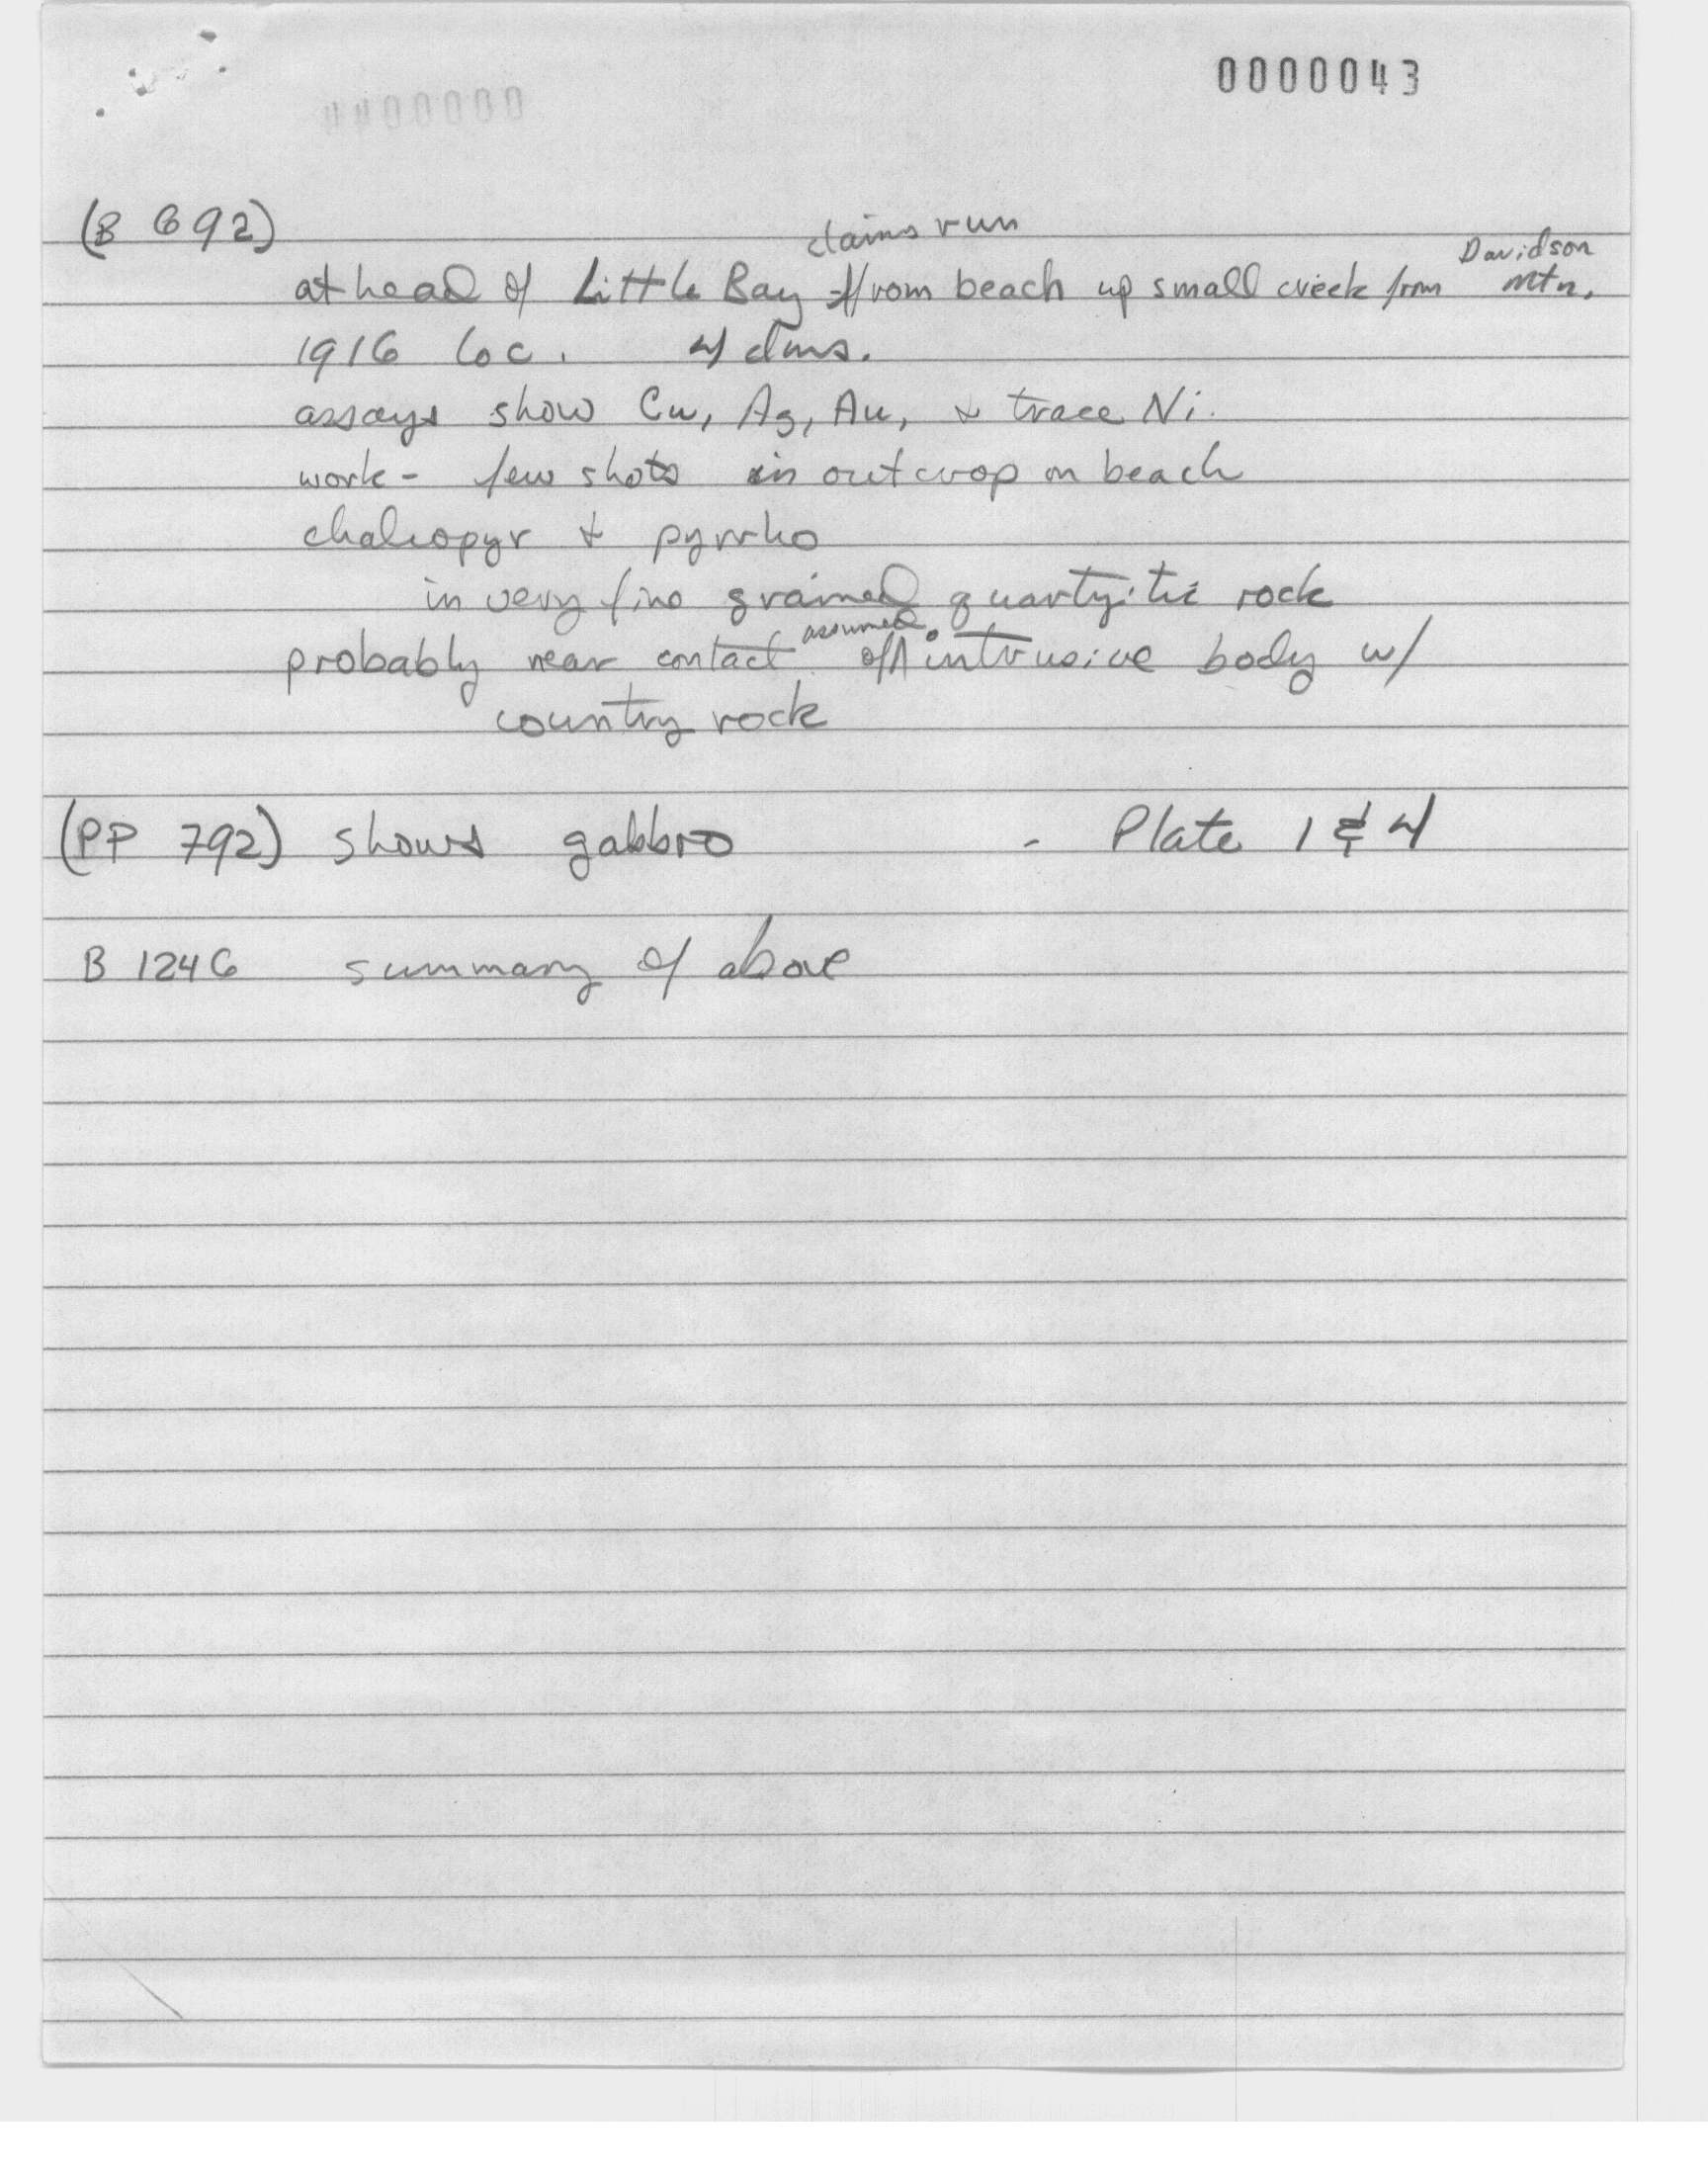 0000043
(B 692)
claims run
at head of Little Bay - from beach up small creek from Davidson Mtn.
1916 loc. 4 clms.
assays show Cu, Ag, Au, & trace Ni.
work - few shots in outcrop on beach
chalcopyr & pyrrho
in very fine grained quartzitic rock
assumed
probably near contact of intrusive body w/
country rock
(PP 792) shows gabbro - Plate 1 & 4
B 1246 summary of above